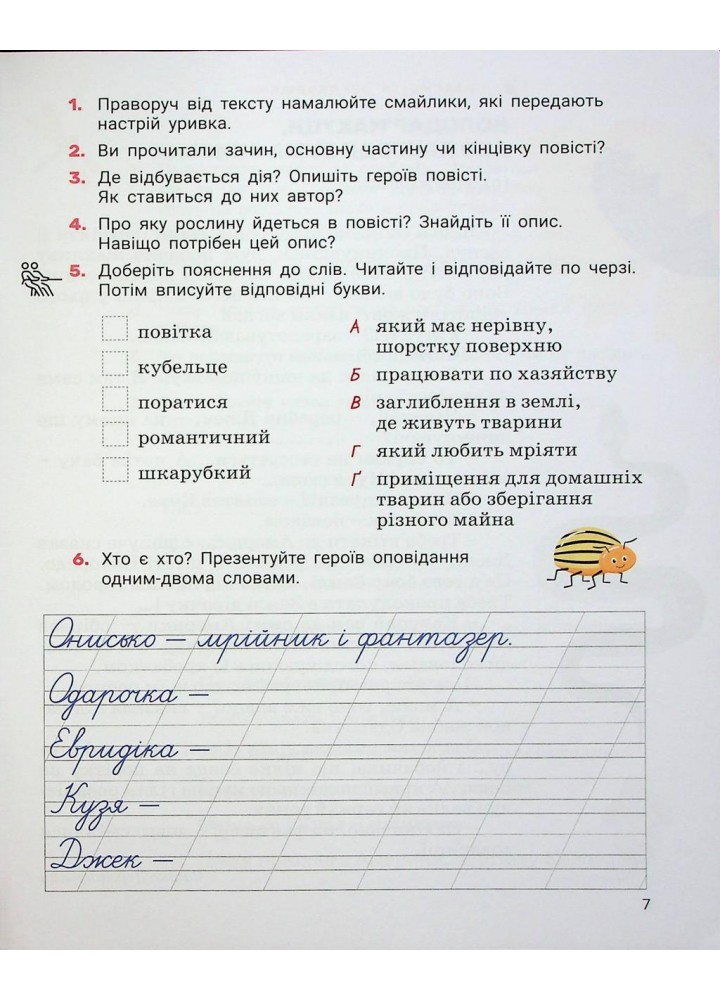 1. Праворуч від тексту намалюйте смайлики, які передають
настрій уривка.
2. Ви прочитали зачин, основну частину чи кінцівку повісті?
3. Де відбувається дія? Опишіть героїв повісті.
Як ставиться до них автор?
4. Про яку рослину йдеться в повісті? Знайдіть її опис.
Навіщо потрібен цей опис?
5. Доберіть пояснення до слів. Читайте і відповідайте по черзі.
Потім вписуйте відповідні букви.
повітка
кубельце
поратися
романтичний
шкарубкий
А який має нерівну,
шорстку поверхню
Б працювати по хазяйству
В заглиблення в землі,
де живуть тварини
Г який любить мріяти
Ґ приміщення для домашніх
тварин або зберігання
різного майна
6. Хто є хто? Презентуйте героїв оповідання
одним-двома словами.
Онисько — мрійник і фантазер.
Одарочка —
Евридіка —
Кузя —
Джек —
7